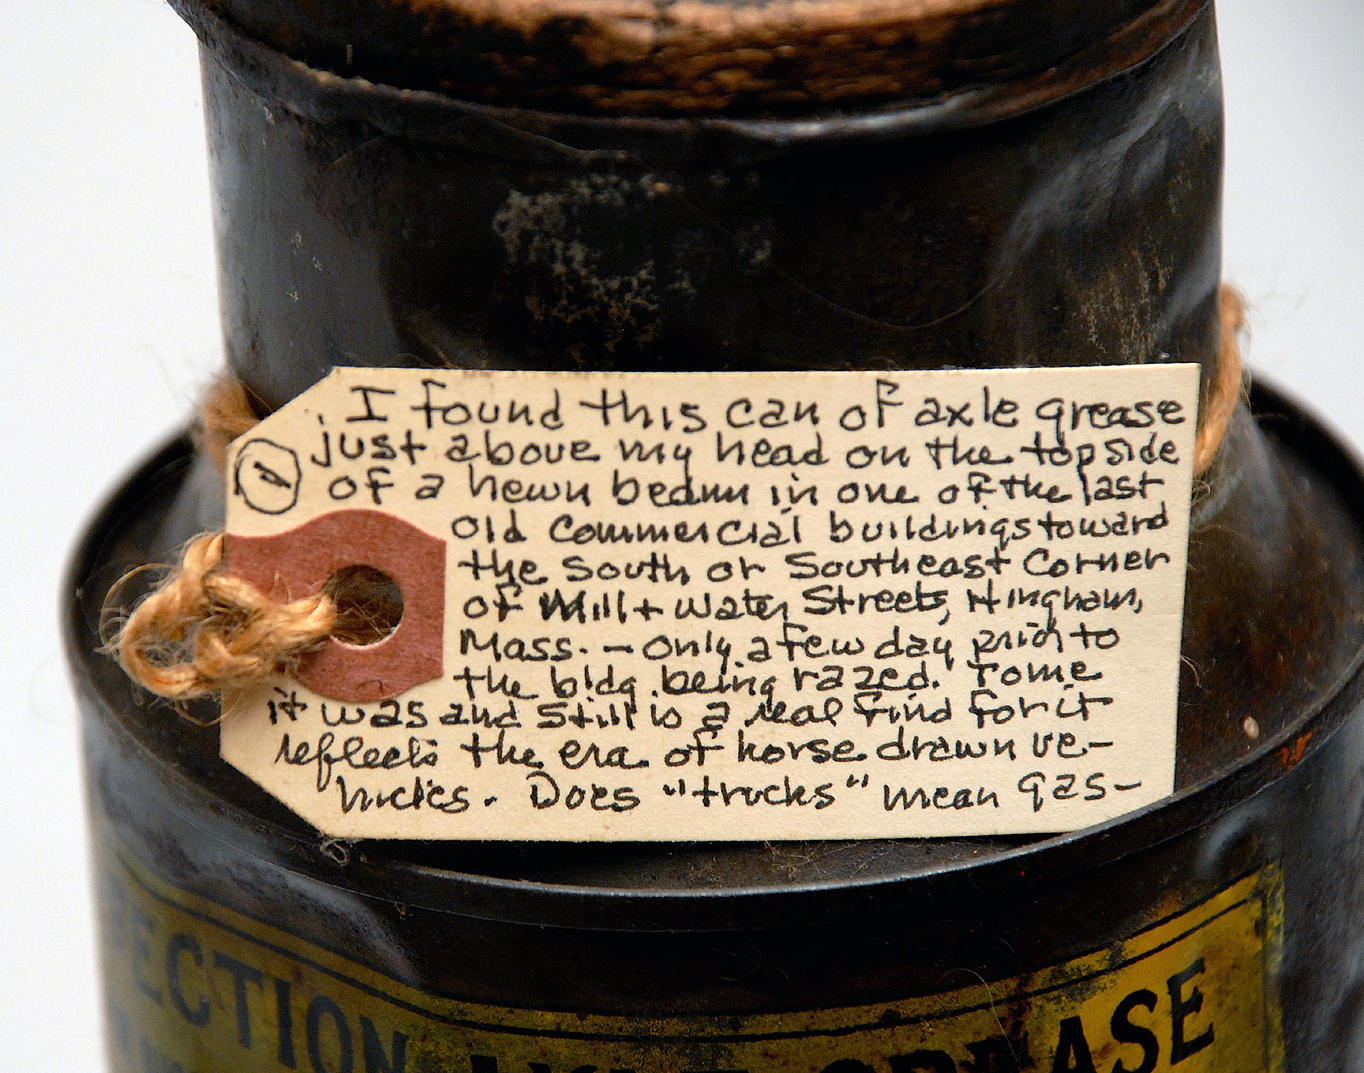 I found this can of axle grease
① just above my head on the topside
of a hewn beam in one of the last
old commercial buildings toward
the south or Southeast Corner
of Mill + Water Streets, Hingham,
Mass. — only a few day prior to
the bldg. being razed. To me
it was and still is a real find for it
reflects the era of horse drawn ve-
hicles. Does "trucks" mean gas-
ECTION AXLE GREASE